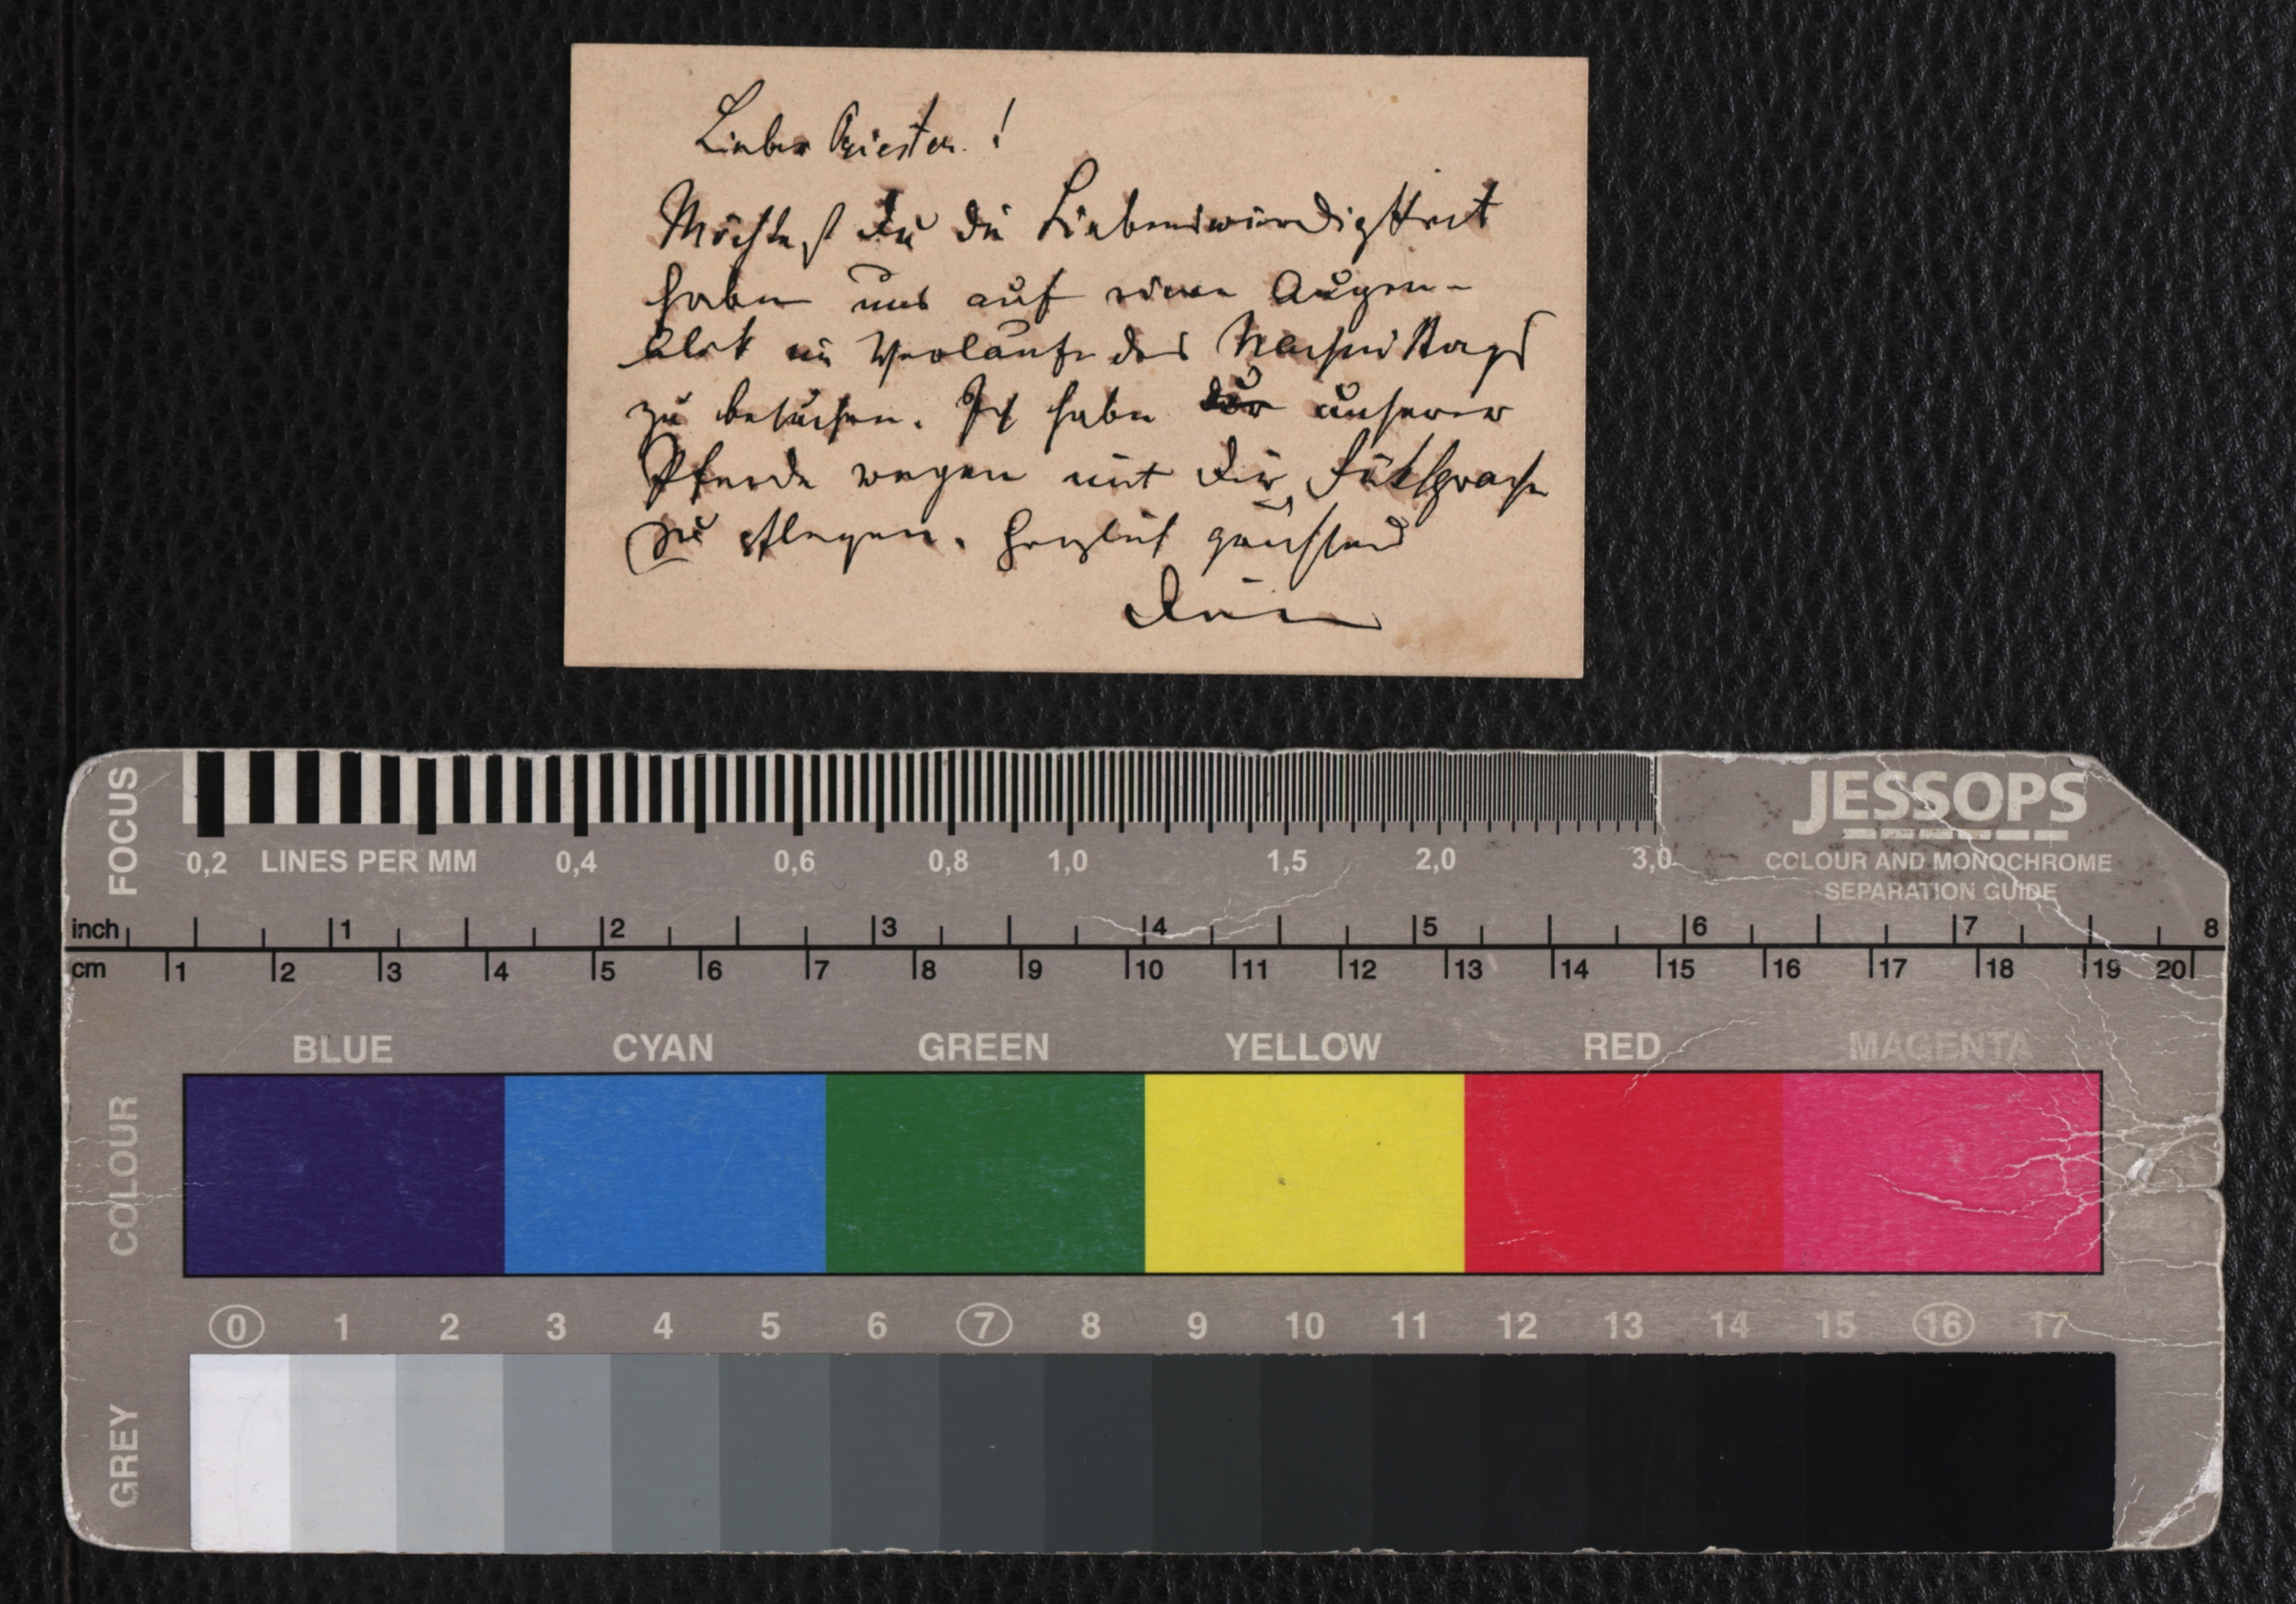 Lieber Priester!
Möchtest Du die Liebenswürdigkeit
haben uns auf einen Augen-
blick im Verlaufe des Nachmittags
zu besuchen. Ich habe unserer
Pferde wegen mit Dir Rücksprache
zu pflegen. Herzlich grüssend
Dein
FOCUS
0,2 LINES PER MM 0,4 0,6 0,8 1,0 1,5 2,0 3,0
JESSOPS
COLOUR AND MONOCHROME
SEPARATION GUIDE
inch 1 2 3 4 5 6 7 8
cm 1 2 3 4 5 6 7 8 9 10 11 12 13 14 15 16 17 18 19 20
COLOUR
BLUE CYAN GREEN YELLOW RED MAGENTA
0 1 2 3 4 5 6 7 8 9 10 11 12 13 14 15 16 17
GREY